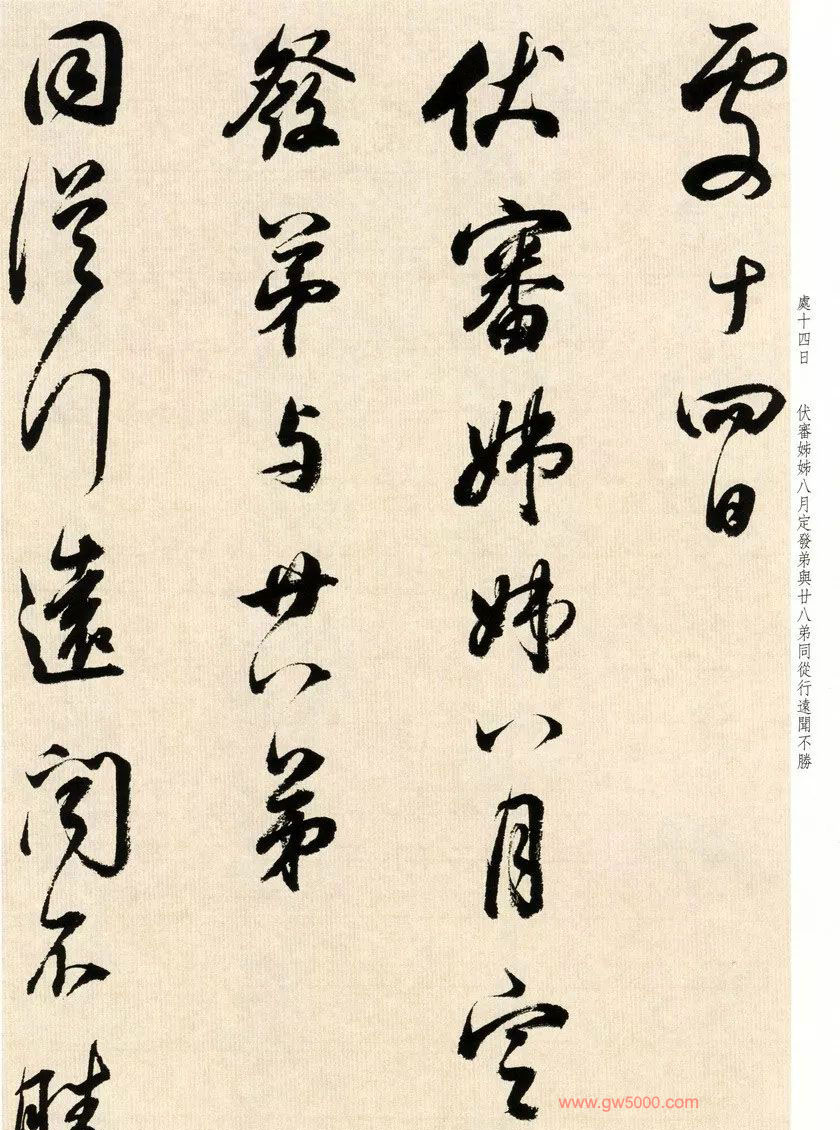 處十四日
伏審姊姊八月定
發弟与廿八弟
同從行遠聞不勝
處十四日 伏審姊姊八月定發弟與廿八弟同從行遠聞不勝
www.gw5000.com